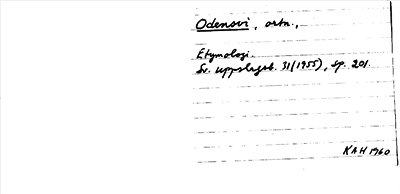 Odensvi, ortn.,
Etymologi.
Sv. uppslagsb. 31(1955), sp. 201.
KAH 1960